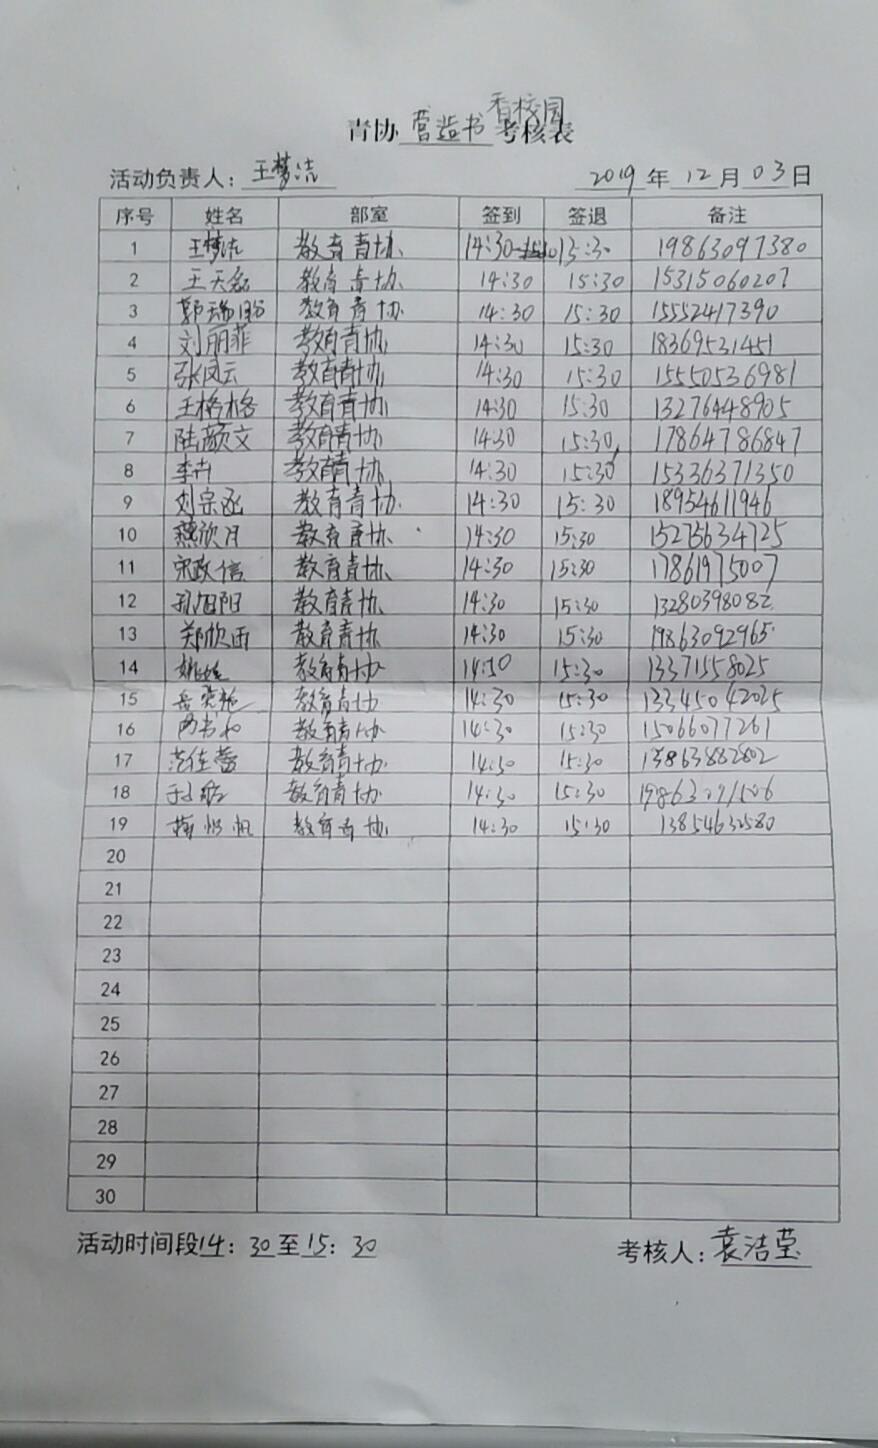 香校园
青协 营造书 考核表
活动负责人： 王梦洁 2019 年 12 月 03 日
序号 姓名 部室 签到 签退 备注
1 王梦洁 教育青协 14:30 15:30 19863097380
2 王天磊 教育青协 14:30 15:30 15315060207
3 郭瑞 教育青协 14:30 15:30 15552417390
4 刘丽菲 教育青协 14:30 15:30 18369531451
5 张凤云 教育青协 14:30 15:30 15550536981
6 王格格 教育青协 14:30 15:30 13276448905
7 陆颜文 教育青协 14:30 15:30 17864786847
8 李卉 教育青协 14:30 15:30 15336371350
9 刘宗丞 教育青协 14:30 15:30 18954611946
10 燕欣月 教育青协 14:30 15:30 15275634725
11 宋政信 教育青协 14:30 15:30 17861975007
12 孙旭阳 教育青协 14:30 15:30 13280398082
13 郑欣雨 教育青协 14:30 15:30 19863092965
14 教育青协 14:30 15:30 13371558025
15 教育青协 14:30 15:30 13345042025
16 教育青协 14:30 15:30 15066077261
17 范佳蕾 教育青协 14:30 15:30 13863882802
18 教育青协 14:30 15:30
19 教育青协 14:30 15:30 13854632580
20
21
22
23
24
25
26
27
28
29
30
活动时间段14：30至15：30 考核人：袁洁莹